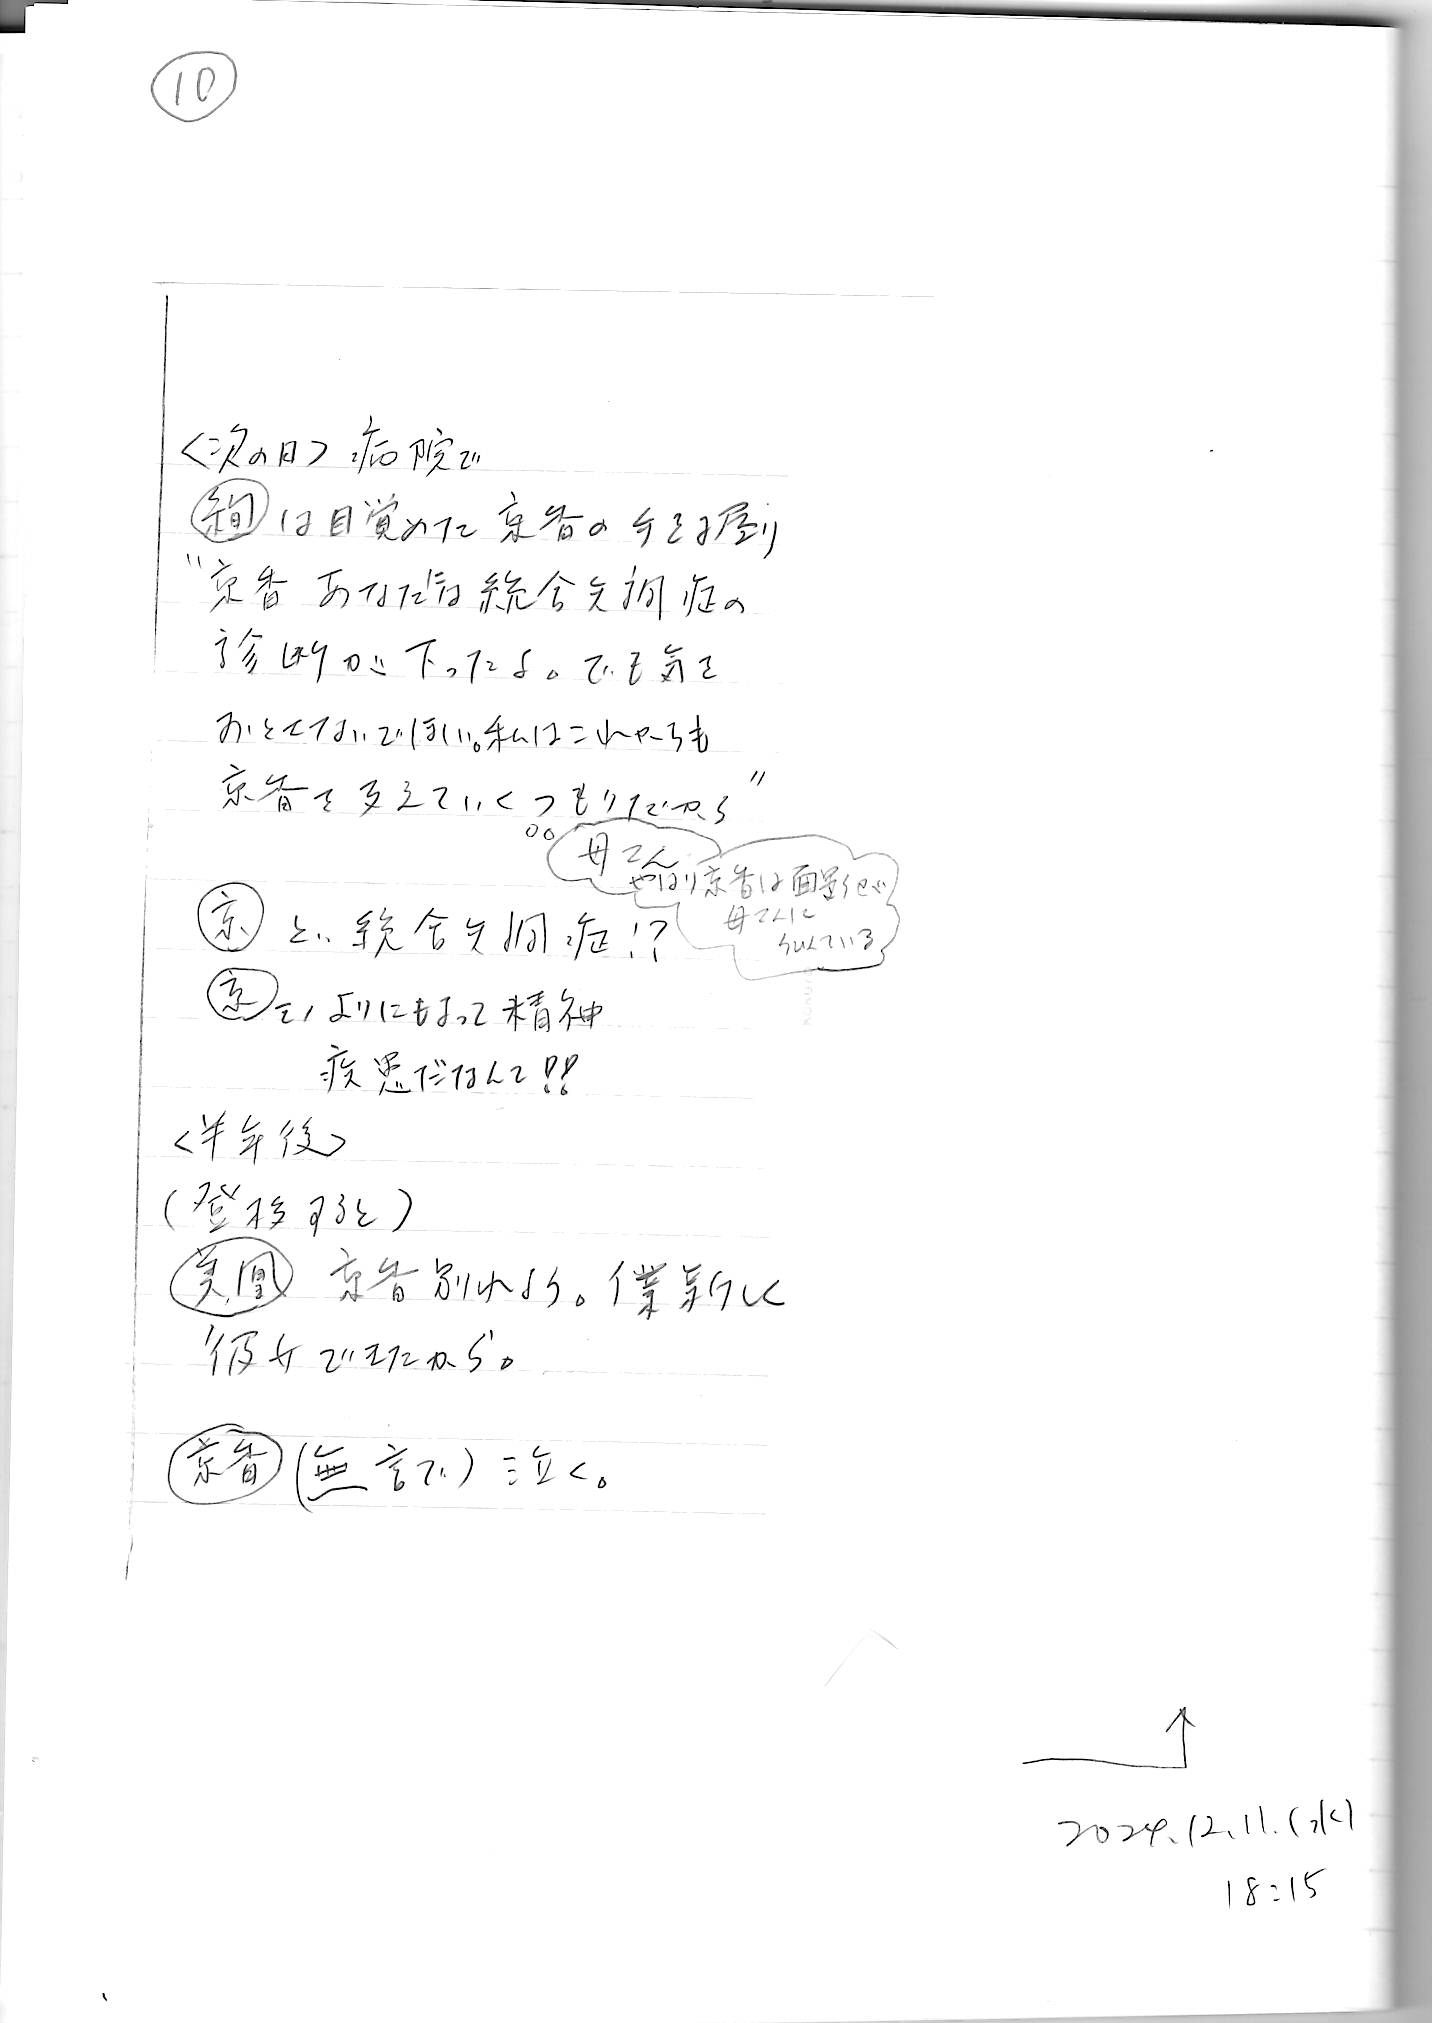 10
<次の日> 病院で
絢 は目覚めた京香の手を握り
"京香 あなたには統合失調症の
診断が下ったよ。でも気を
おとさないでほしい。私はこれからも
京香を支えていくつもりだから"
母さん
やはり京香は面影が
母さんに
似ている
京 と、統合失調症!?
京 そ、よりにもよって精神
疾患だなんて!!
<半年後>
(登校すると)
美凰 京香別れよう。僕新しく
彼女できたから。
京香 (無言で) 泣く。
2024.12.11.(水)
18:15